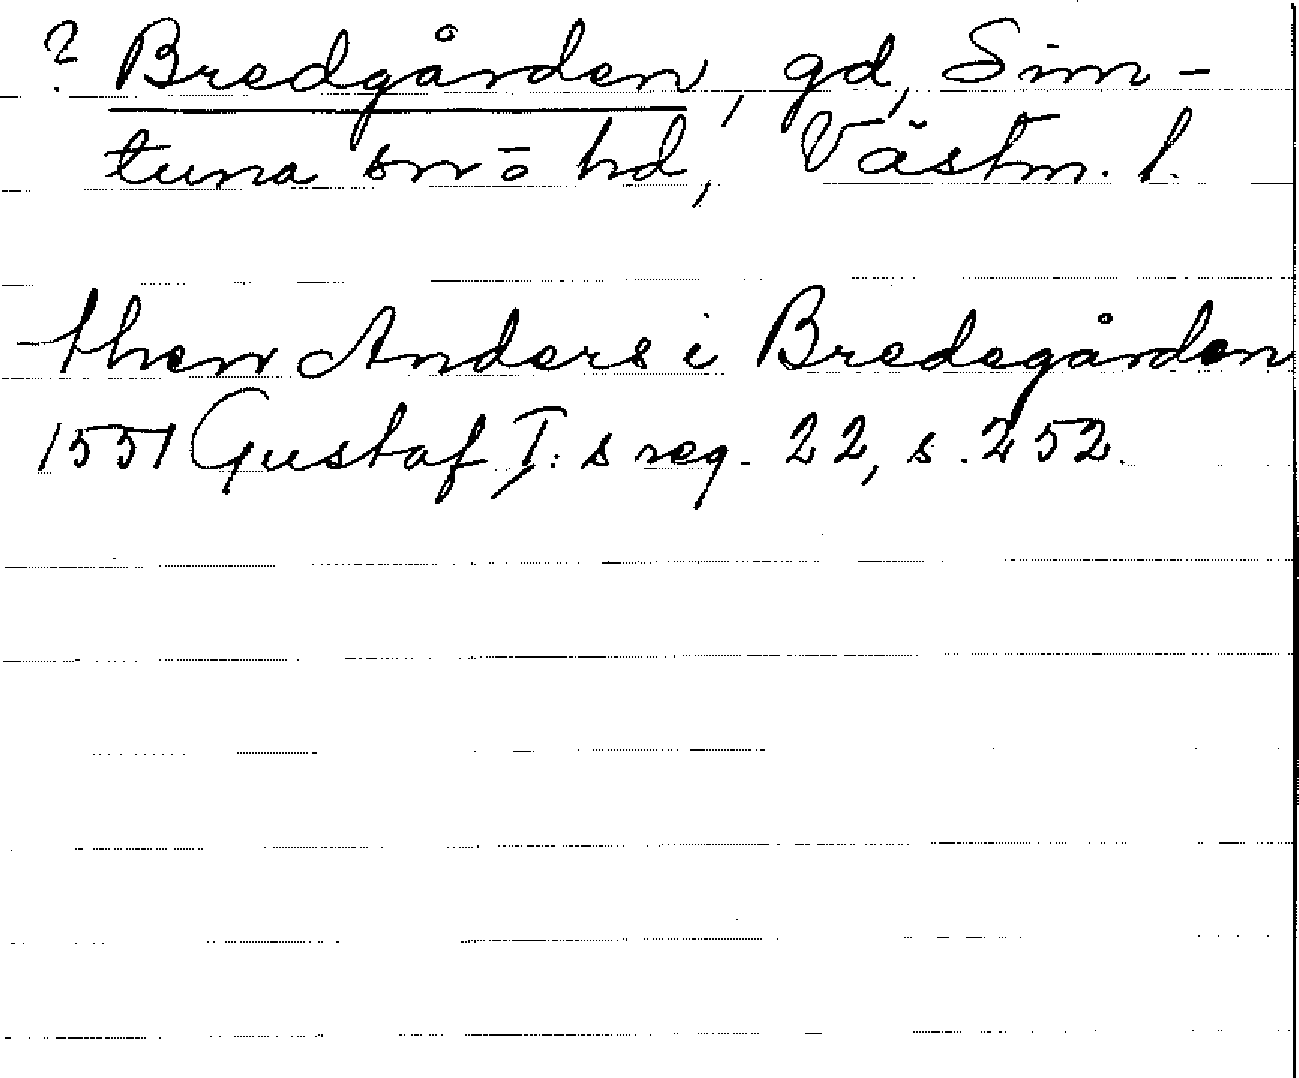 ? Bredgården, gd, Sim-
tuna sn o hd, Västm. l.
then Anders i Bredegården
1551 Gustaf I:s reg. 22, s. 252.